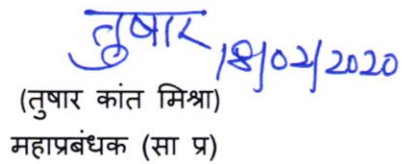 तुषार 18/02/2020
(तुषार कांत मिश्रा)
महाप्रबंधक (सा प्र)